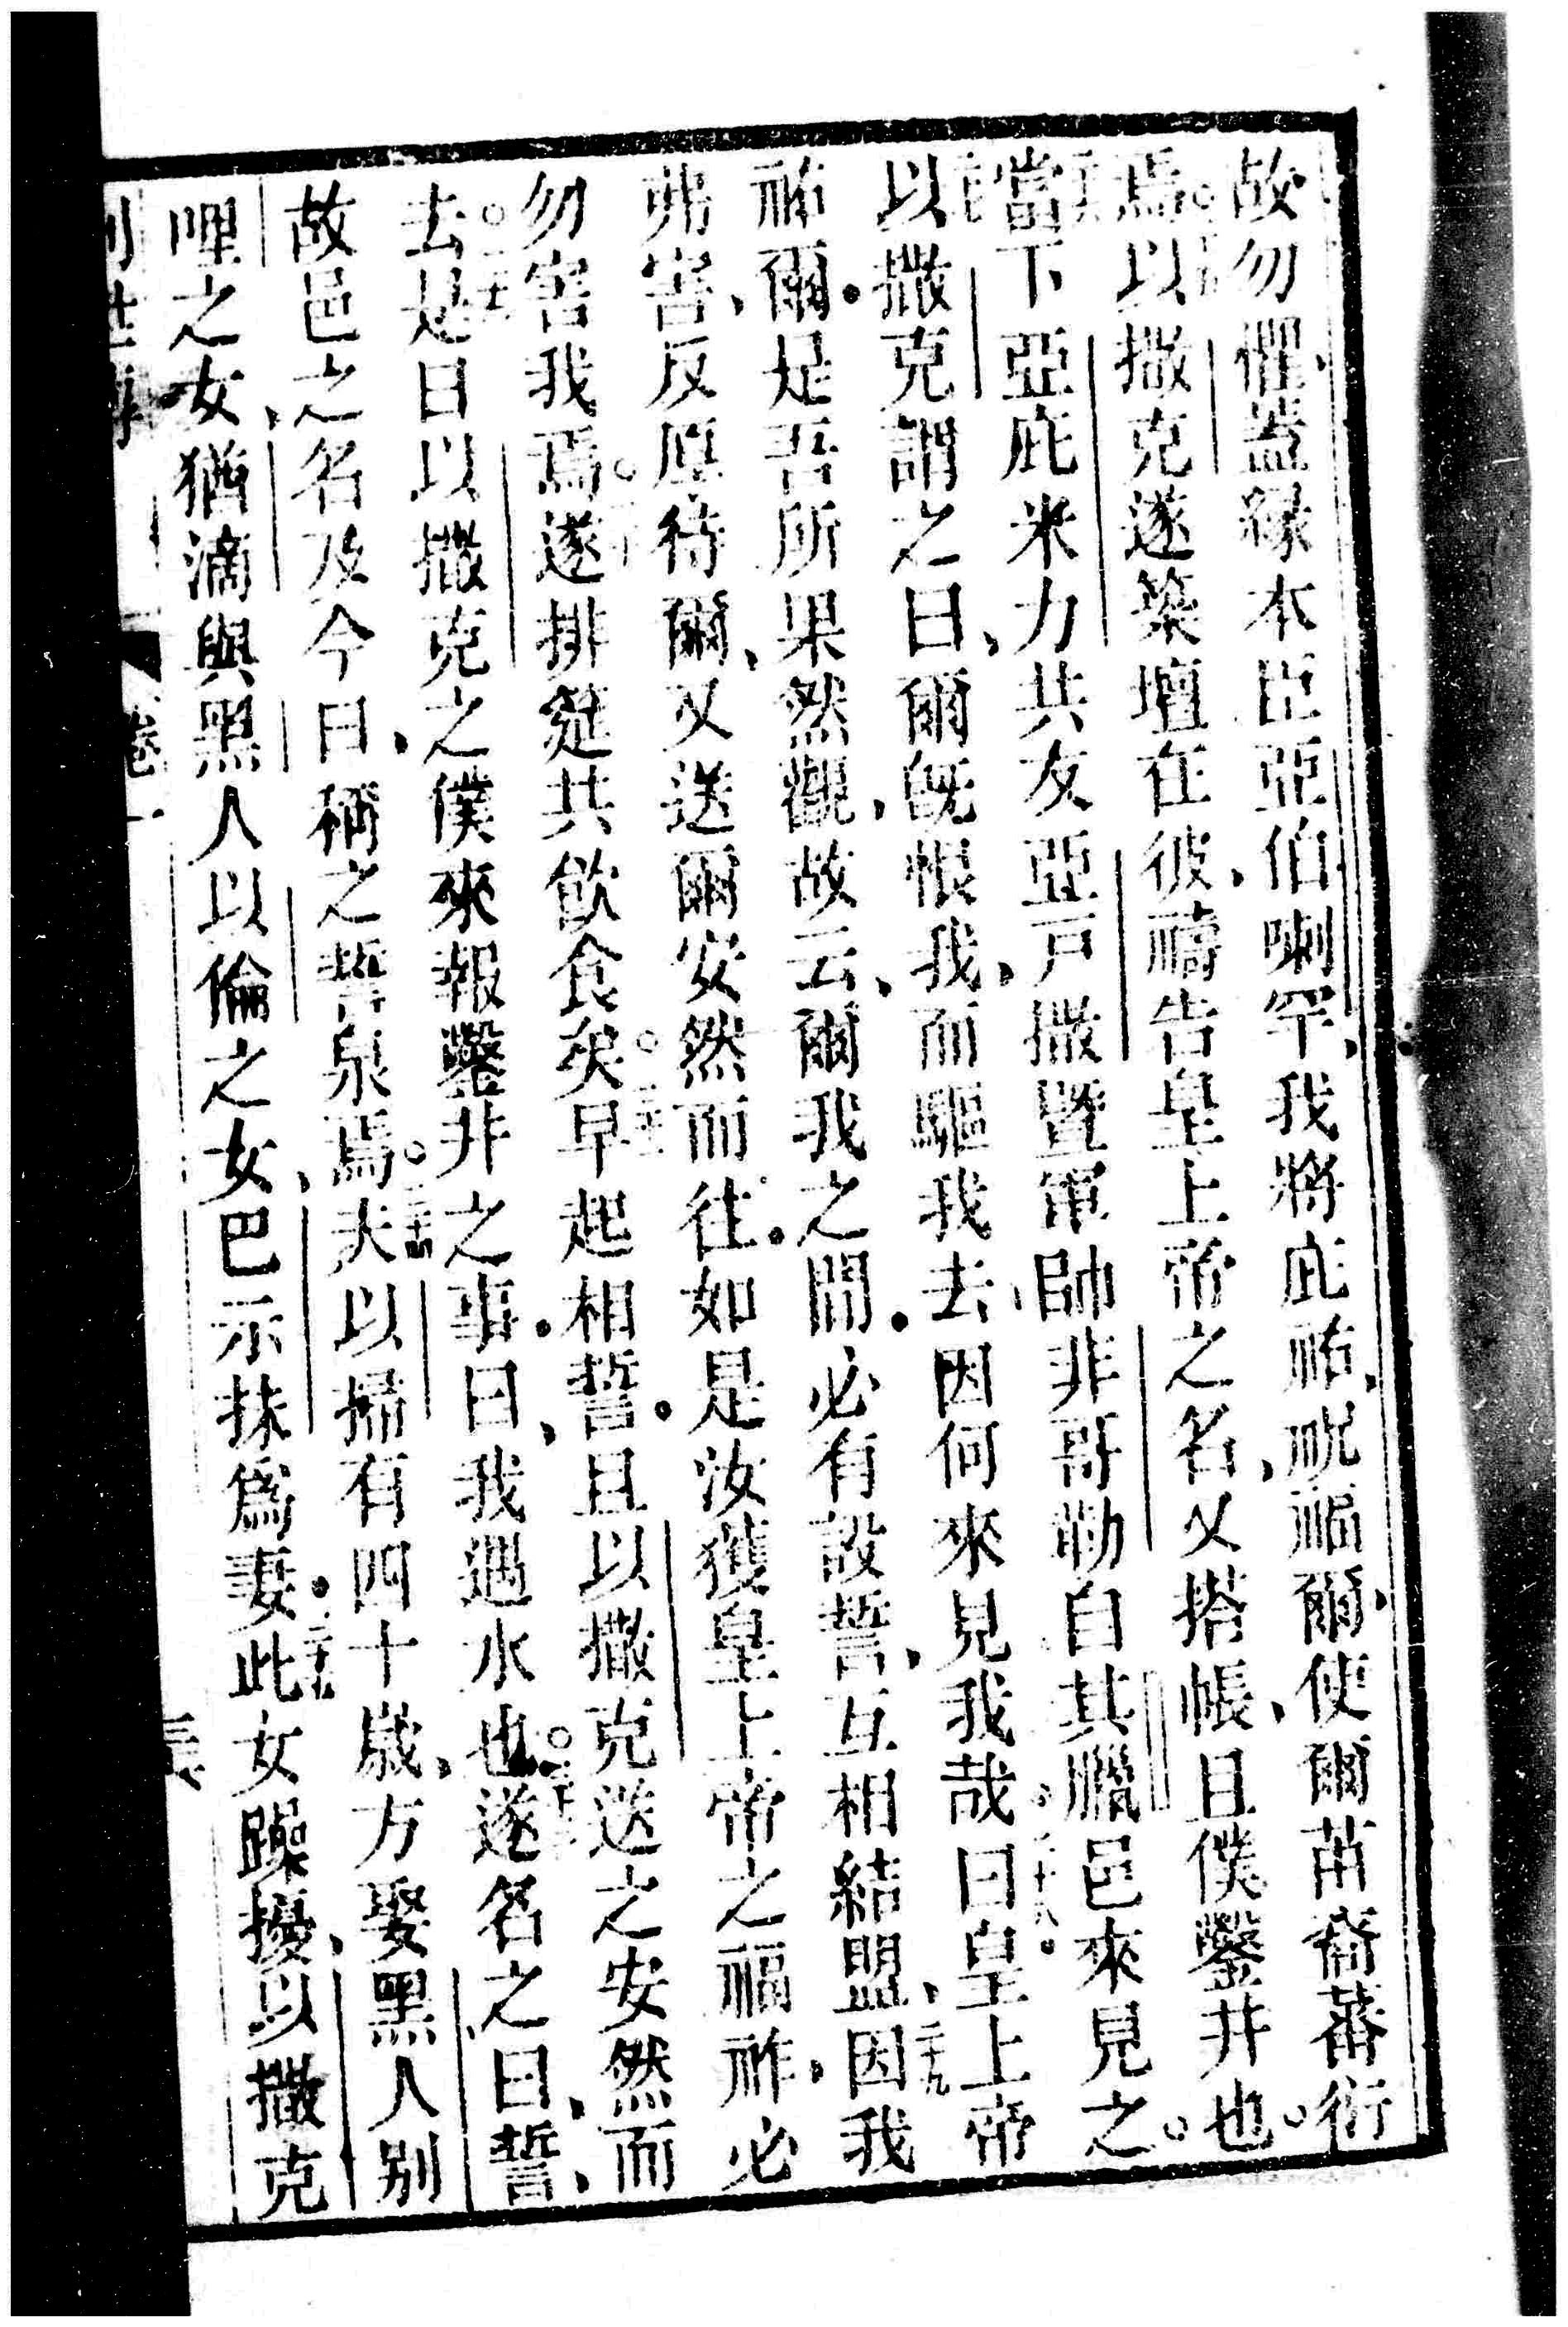 故勿懼、蓋緣本臣亞伯喇罕、我將庇祐、祝福爾、使爾苗裔蕃衍
焉。以撒克遂築壇在彼、禱告皇上帝之名、又搭帳、且僕鑿井也。
當下亞庇米力共友亞戶撒暨軍帥非哥勒自其臘邑來見之。
以撒克謂之曰、爾旣恨我、而驅我去、因何來見我哉。二十八曰皇上帝
祐爾.是吾所果然觀、故云、爾我之間.必有設誓、互相結盟、二十九因我
弗害、反厚待爾、又送爾安然而往.如是汝獲皇上帝之福祚、必
勿害我焉。遂排筵共飮食矣。早起相誓.且以撒克送之安然而
去。是日以撒克之僕來報鑿井之事.曰、我遇水也。遂名之曰、誓、
故邑之名及今日、稱之誓泉焉。夫以掃有四十歲、方娶黑人別
哩之女、猶滴與黑人以倫之女、巴示抹爲妻.此女躁擾、以撒克